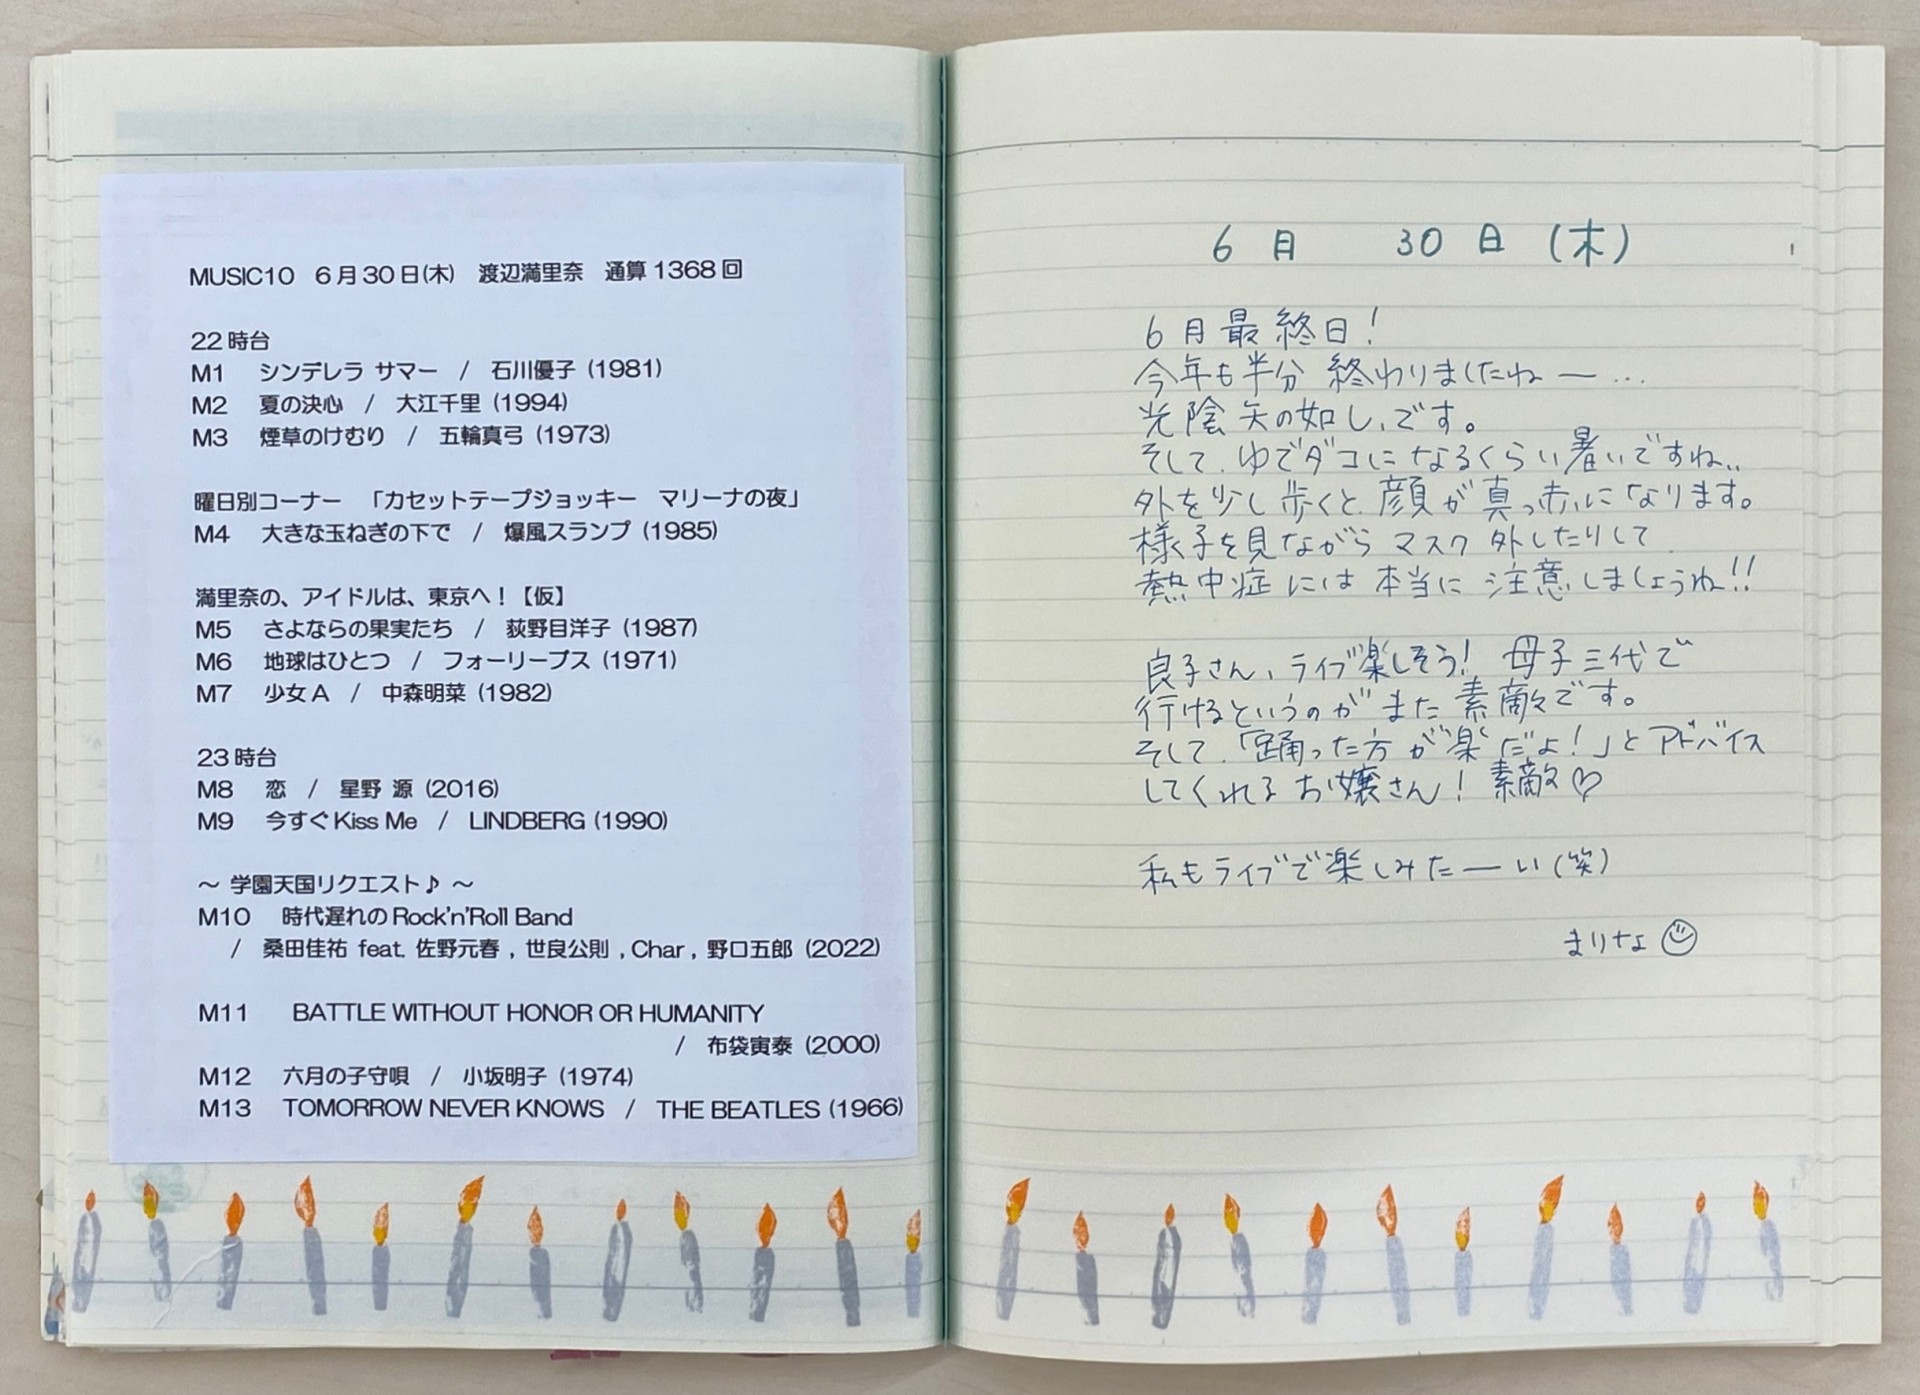 MUSIC10　6月30日(木)　渡辺満里奈　通算1368回
22時台
M1　シンデレラ サマー　/　石川優子 (1981)
M2　夏の決心　/　大江千里 (1994)
M3　煙草のけむり　/　五輪真弓 (1973)
曜日別コーナー　「カセットテープジョッキー　マリーナの夜」
M4　大きな玉ねぎの下で　/　爆風スランプ (1985)
満里奈の、アイドルは、東京へ！【仮】
M5　さよならの果実たち　/　荻野目洋子 (1987)
M6　地球はひとつ　/　フォーリーブス (1971)
M7　少女A　/　中森明菜 (1982)
23時台
M8　恋　/　星野 源 (2016)
M9　今すぐKiss Me　/　LINDBERG (1990)
～ 学園天国リクエスト♪ ～
M10　時代遅れのRock'n'Roll Band
/　桑田佳祐 feat. 佐野元春 , 世良公則 , Char , 野口五郎 (2022)
M11　BATTLE WITHOUT HONOR OR HUMANITY
/　布袋寅泰 (2000)
M12　六月の子守唄　/　小坂明子 (1974)
M13　TOMORROW NEVER KNOWS　/　THE BEATLES (1966)
6月　30日(木)
6月最終日！
今年も半分 終わりましたねー…
光陰矢の如し、です。
そして、ゆでダコになるくらい暑いですね、、
外を少し歩くと、顔が真っ赤になります。
様子を見ながら マスク外したりして
熱中症には本当に注意しましょうね!!
良子さん、ライブ楽しそう！ 母子三代で
行けるというのがまた素敵です。
そして、「踊った方が楽だよ！」とアドバイス
してくれるお嬢さん！素敵♡
私もライブで楽しみたーい(笑)
まりな☺